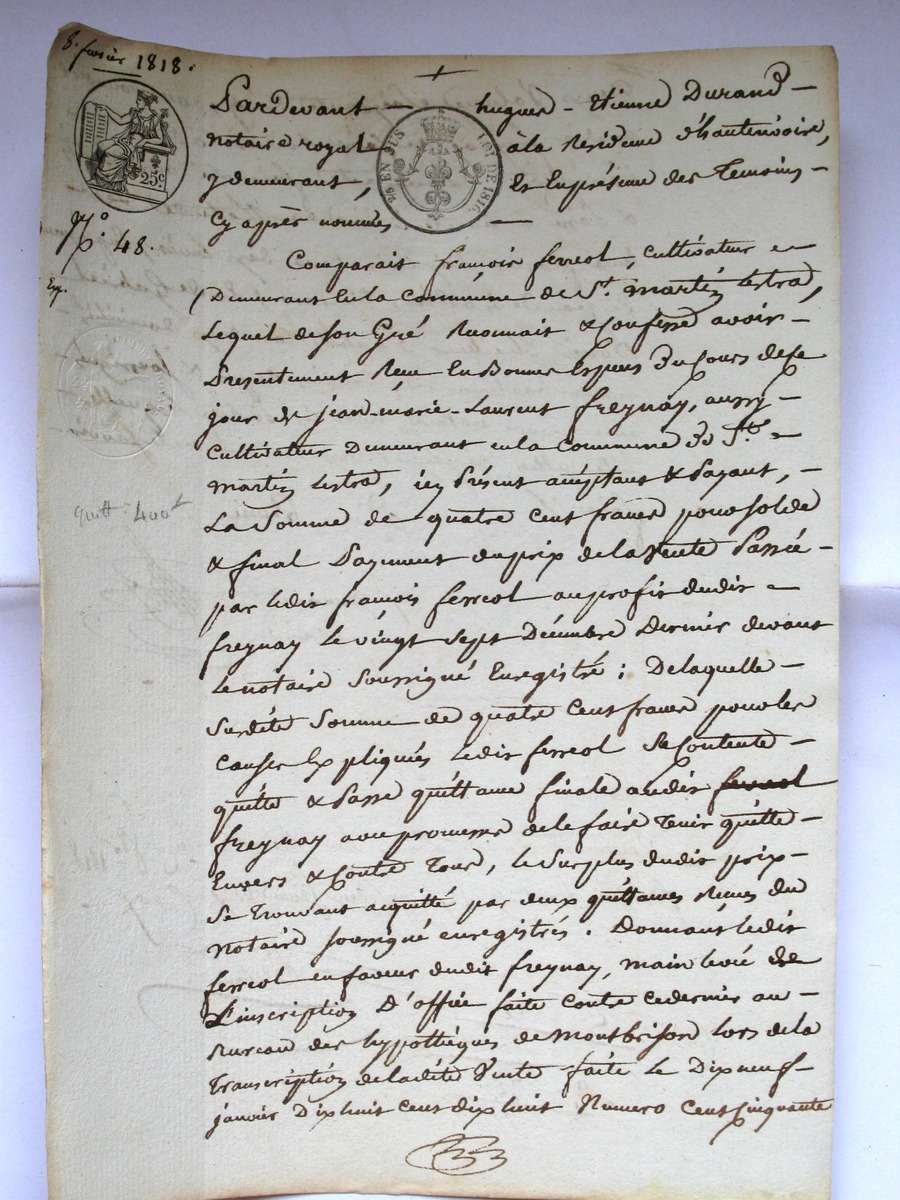 8. fevrier 1818.
Pardevant — hugues - Etienne Durand —
notaire royal à la Residence d'hauterivoire,
y demeurant, Et En présence des Temoins -
Cy après nommés —
25c.
EN SUS
LOI DE 1816.
N° 48.
Comparait françois ferreol, cultivateur -
Demeurant En la Commune de St. Martin Lestra,
Lequel de son Gré Reconnait & Confesse avoir -
Presentement Recu En Bonnes Especes Du Cours de ce
jour de jean-marie-Laurent freynay, aussy
Cultivateur Demeurant en la Commune de St. -
Martin Lestra, icy Présent acceptant & Payant, -
quitt. 400
La Somme de quatre Cent francs pour Solde
& final Payement du prix de la Vente Passée -
par ledit françois ferreol au profit dudit -
freynay le vingt Sept Décembre Dernier devant
le notaire Soussigné Enregistré ; De laquelle -
Susdite Somme de quatre Cent francs pour les
Causes Expliquées ledit ferreol Se Contente -
quitte & Passe quittance finale audit ferreol
freynay avec promesse de le faire Tenir quitte -
Envers & Contre Tous, le Surplus dudit prix -
Se Trouvant acquitté par deux quittances Recues du
Notaire Soussigné enregistrés. Donnant ledit
ferreol en faveur dudit freynay, main levée de
L'inscription D'office faite contre ce dernier au -
Bureau des hypothéques de Montbrison lors de la
Transcription de ladite Vente faite le Dix neuf -
janvier Dix huit cent dix huit Numero Cent Cinquante